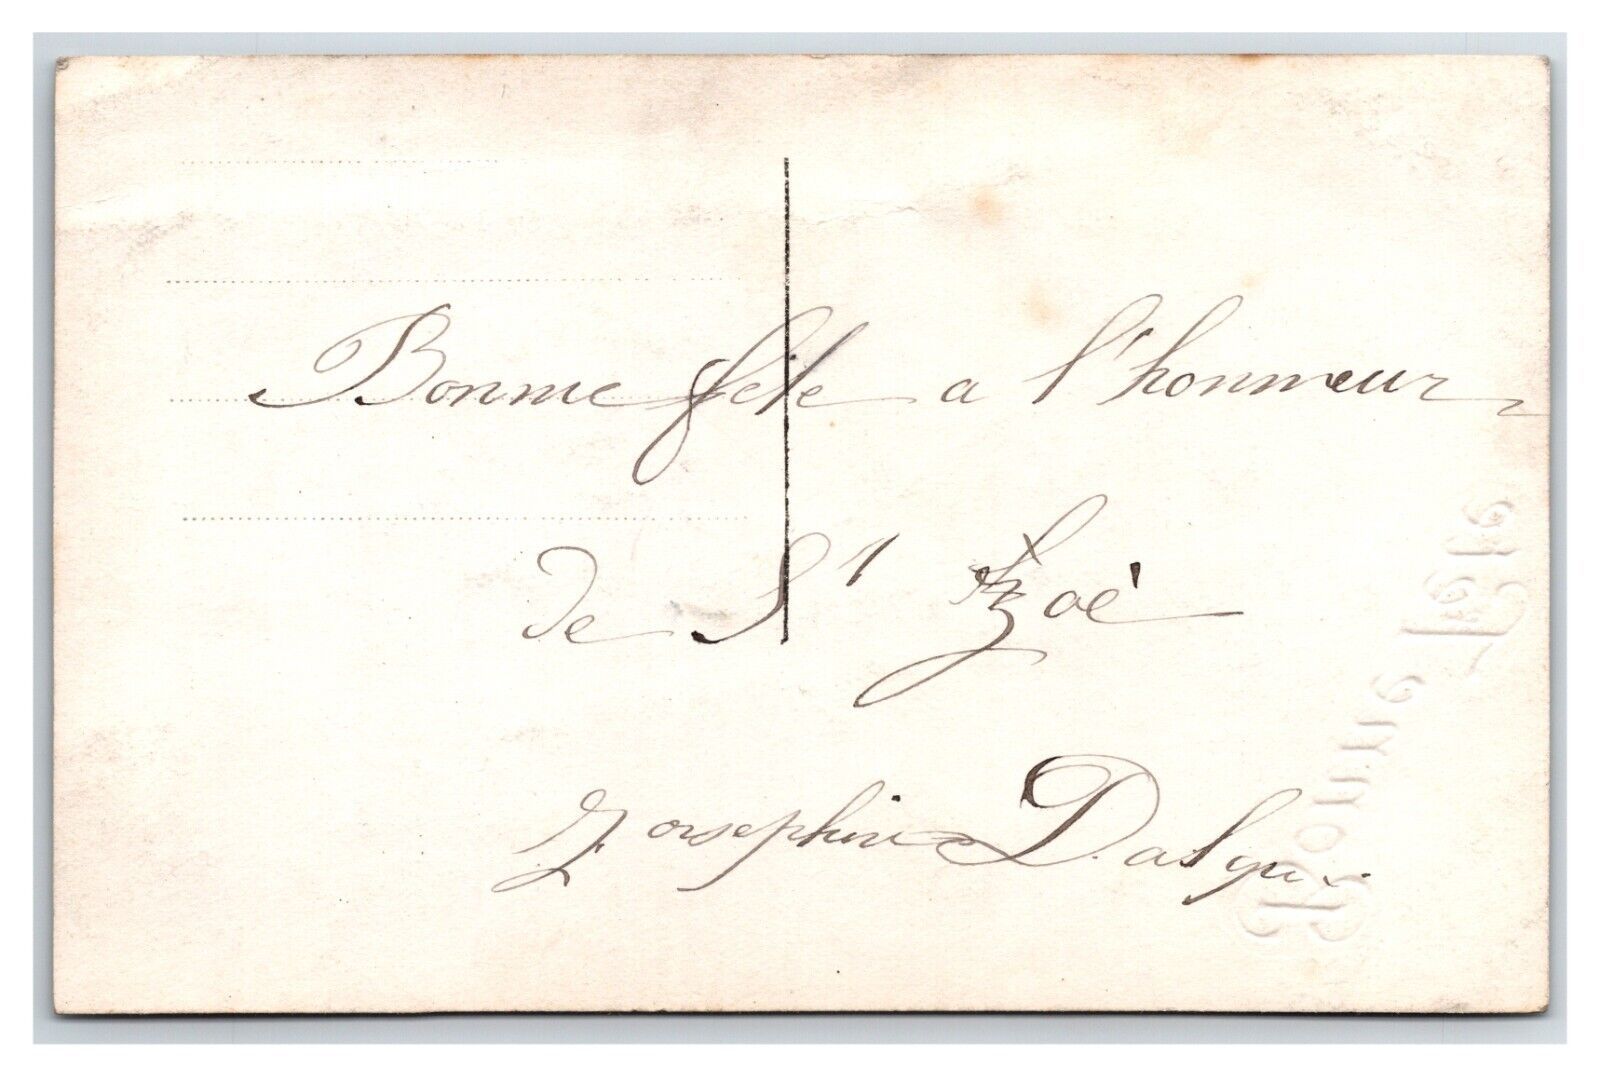 Bonne fete a l'honneur
de St Zoé
Josephine Dalqu
Bonne Fête